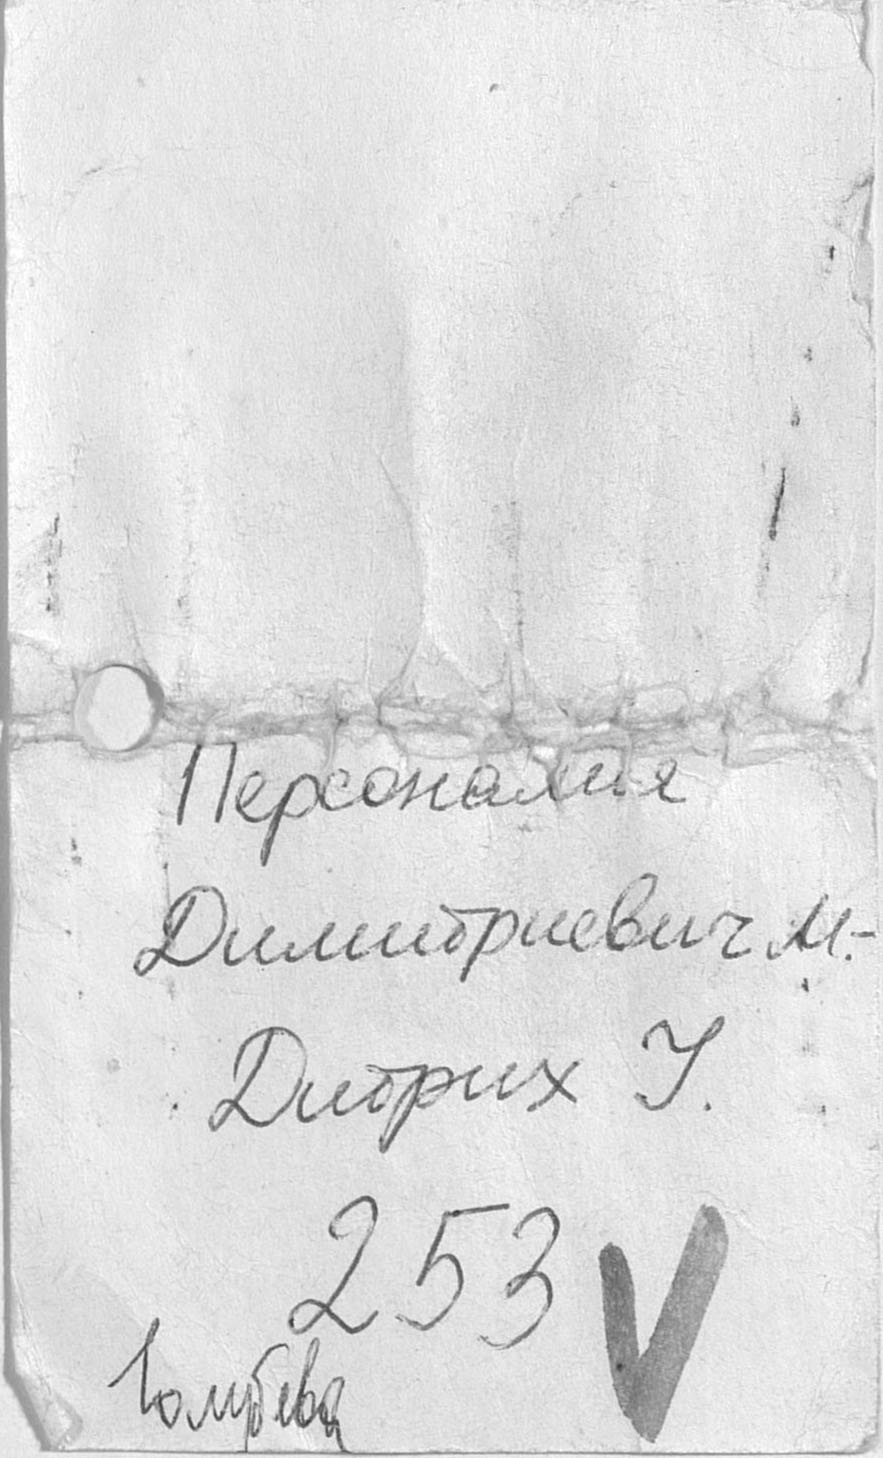 Персоналия
Димитриевич М.-
Дитрих У.
253 V
Голубева